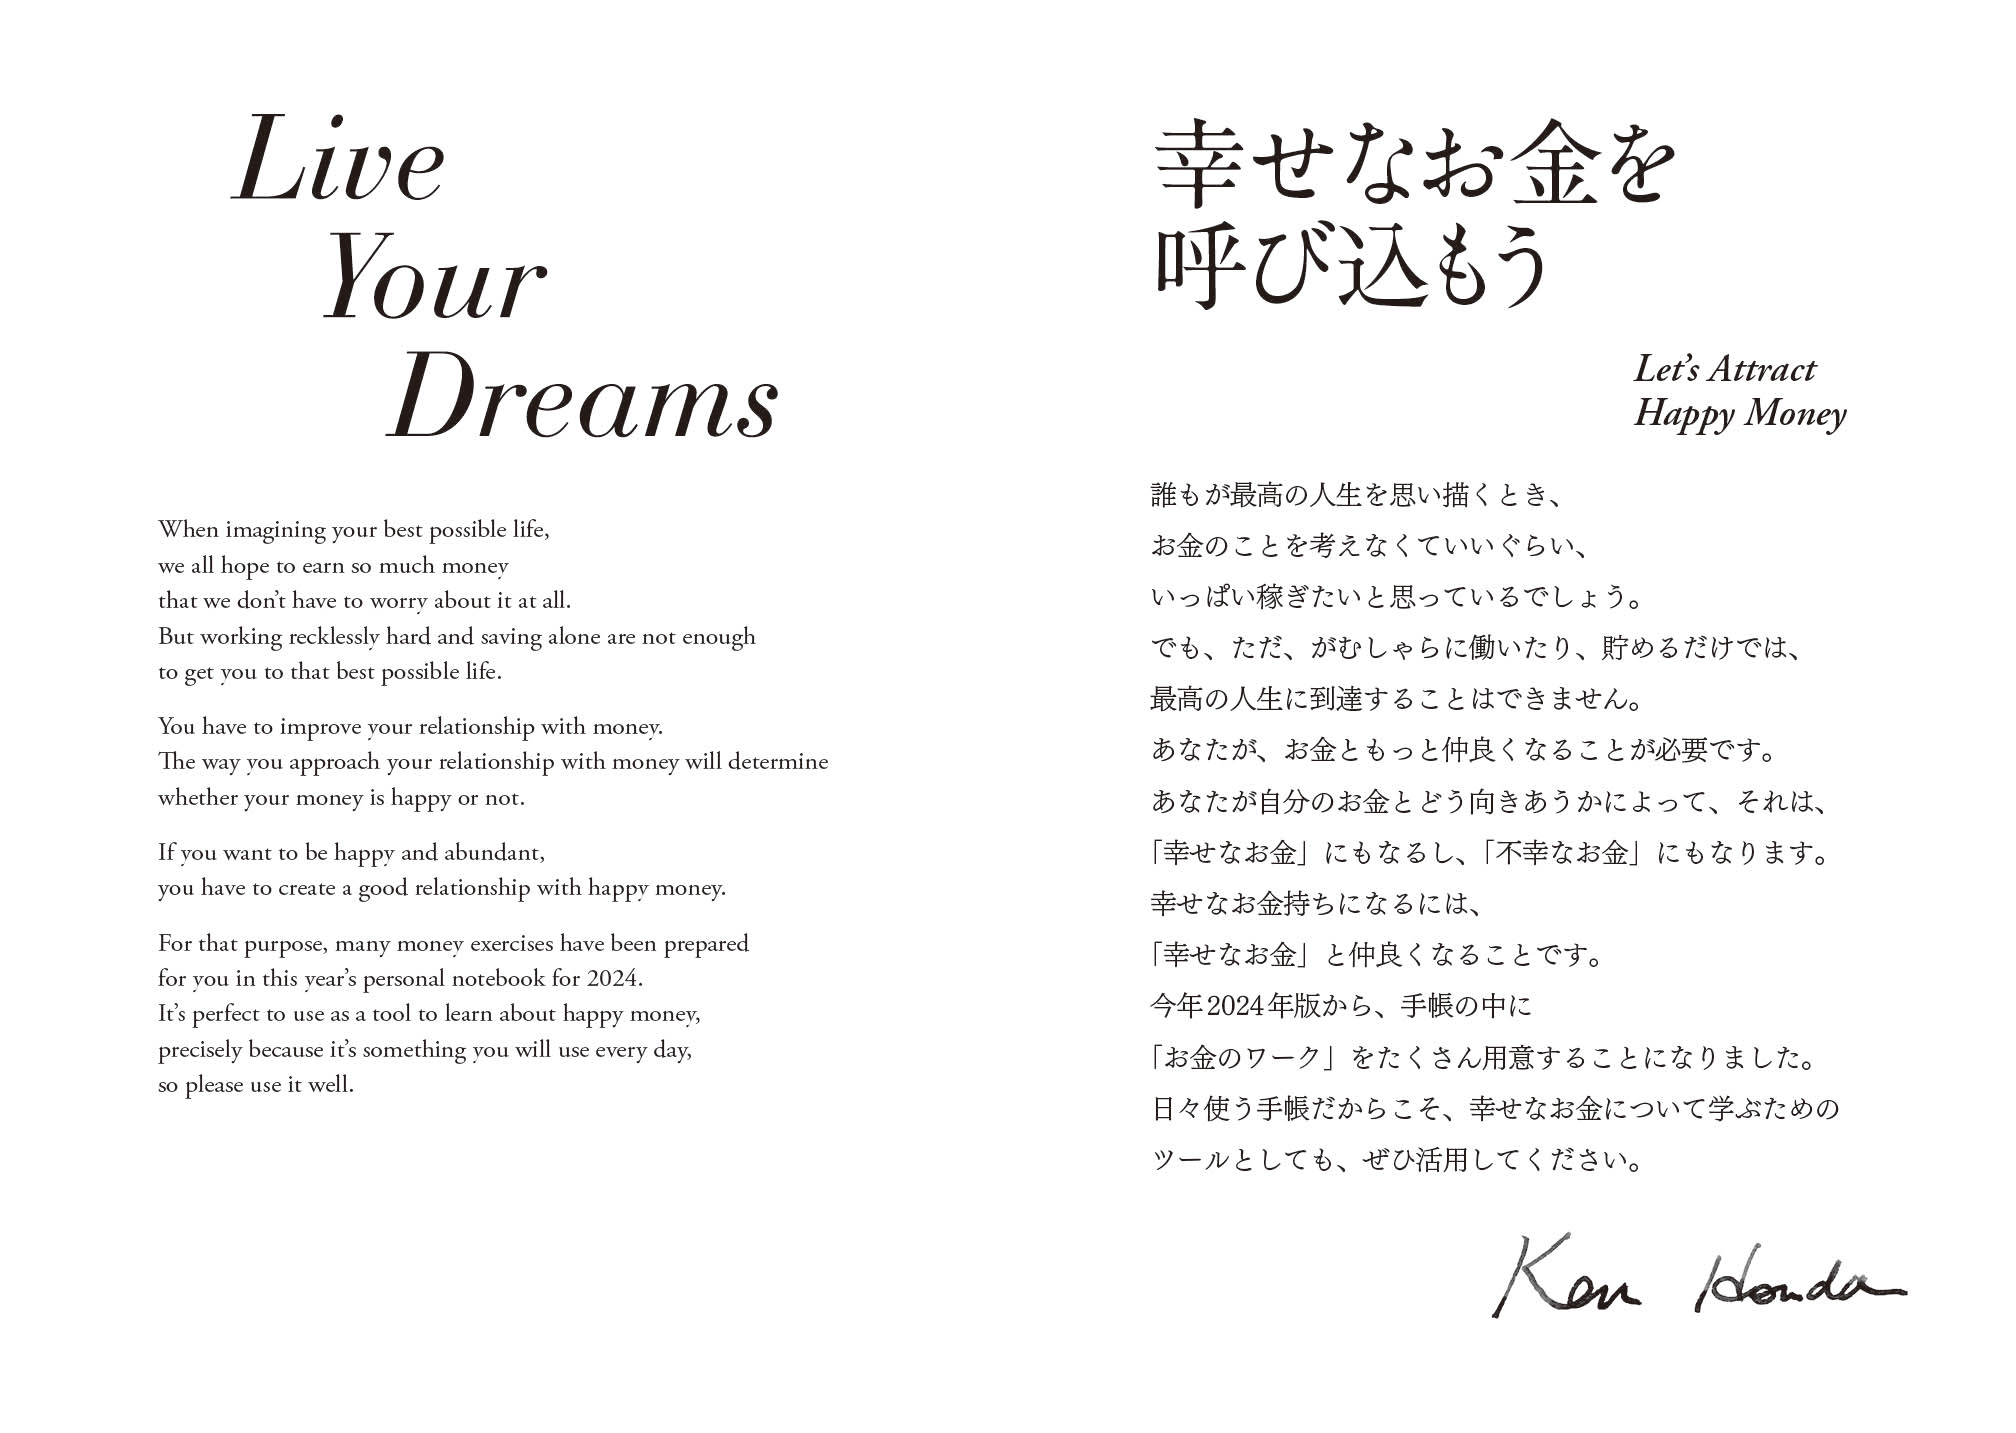 Live
Your
Dreams
When imagining your best possible life,
we all hope to earn so much money
that we don't have to worry about it at all.
But working recklessly hard and saving alone are not enough
to get you to that best possible life.
You have to improve your relationship with money.
The way you approach your relationship with money will determine
whether your money is happy or not.
If you want to be happy and abundant,
you have to create a good relationship with happy money.
For that purpose, many money exercises have been prepared
for you in this year's personal notebook for 2024.
It's perfect to use as a tool to learn about happy money,
precisely because it's something you will use every day,
so please use it well.
幸せなお金を
呼び込もう
Let's Attract
Happy Money
誰もが最高の人生を思い描くとき、
お金のことを考えなくていいぐらい、
いっぱい稼ぎたいと思っているでしょう。
でも、ただ、がむしゃらに働いたり、貯めるだけでは、
最高の人生に到達することはできません。
あなたが、お金ともっと仲良くなることが必要です。
あなたが自分のお金とどう向きあうかによって、それは、
「幸せなお金」にもなるし、「不幸なお金」にもなります。
幸せなお金持ちになるには、
「幸せなお金」と仲良くなることです。
今年2024年版から、手帳の中に
「お金のワーク」をたくさん用意することになりました。
日々使う手帳だからこそ、幸せなお金について学ぶための
ツールとしても、ぜひ活用してください。
Ken Honda